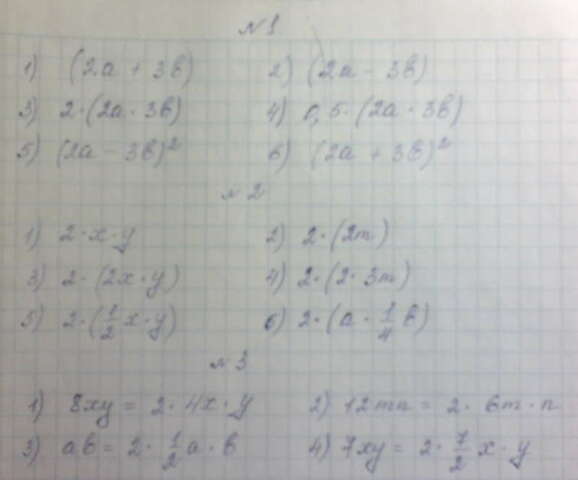 №1
1) (2a + 3b) 2) (2a - 3b)
3) 2·(2a·3b) 4) 0,5·(2a·3b)
5) (2a - 3b)² 6) (2a + 3b)²
№2
1) 2·x·y 2) 2·(2m)
3) 2·(2x·y) 4) 2·(2·3m)
5) 2·(1/2 x·y) 6) 2·(a·1/4 b)
№3
1) 8xy = 2·4x·y 2) 12mn = 2·6m·n
3) ab = 2·1/2 a·b 4) 7xy = 2·7/2 x·y